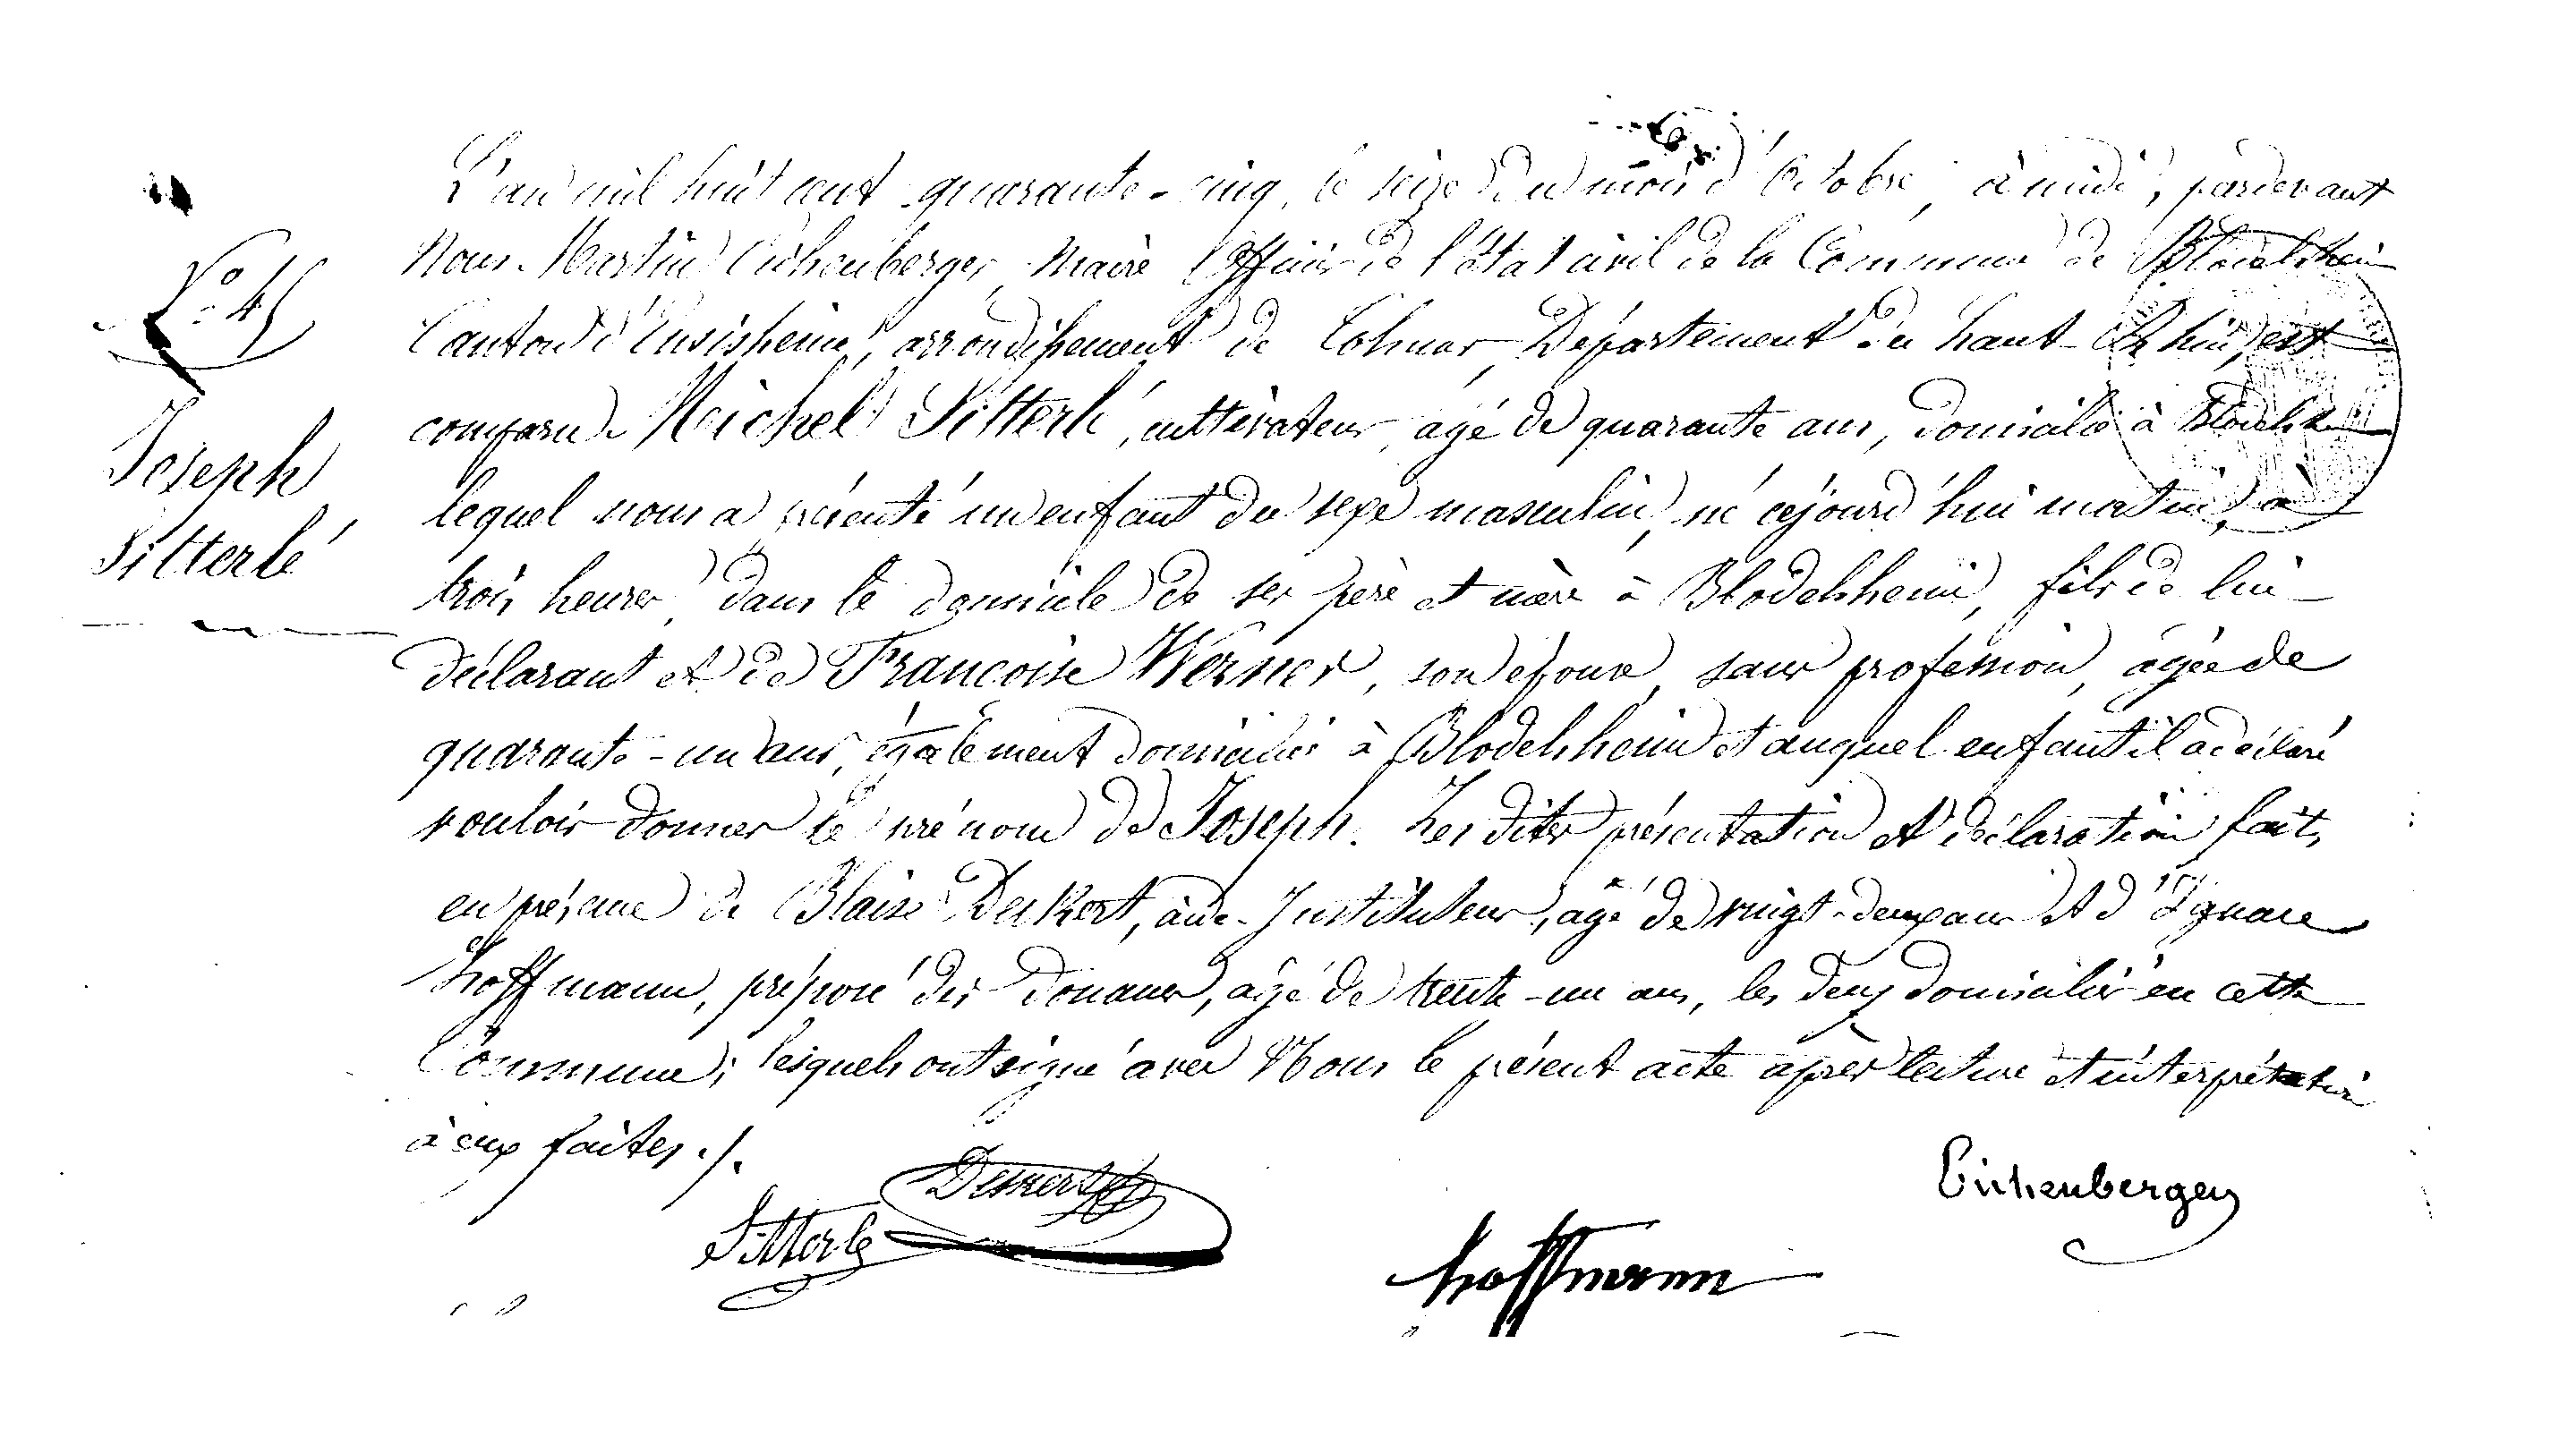 N.° 45
Joseph
Sitterlé
L'an mil huit cent quarante-cinq, le seize du mois d'Octobre, à midi, pardevant
Nous Martin Eichenberger, Maire Officier de l'état civil de la Commune de Blodelsheim
Canton d'Ensisheim, arrondissement de Colmar, Département du haut-Rhin, est
comparu Michel Sitterlé, cultivateur, agé de quarante ans, domicilié à Blodelsh.
lequel nous a présenté un enfant du sexe masculin, né cejourd'hui matin, à
trois heures, dans le domicile de ses père et mère à Blodelsheim, fils de lui-
déclarant et de Francoise Werner, son épouse, sans profession, agée de
quarante-un ans, également domiciliés à Blodelsheim et auquel enfant il a déclaré
vouloir donner le prénom de Joseph. Les dites présentation et déclaration faites
en présence de Blaise Deckert, aide-Instituteur, agé de vingt-deux ans et d'Ignace
hoffmann, préposé des douanes, agé de trente-un ans, les deux domiciliés en cette
Commune; lesquels ont signé avec Nous le présent acte après lecture et interprétation
à eux faites ./.
Sitterle Deckert hoffmann Eichenberger